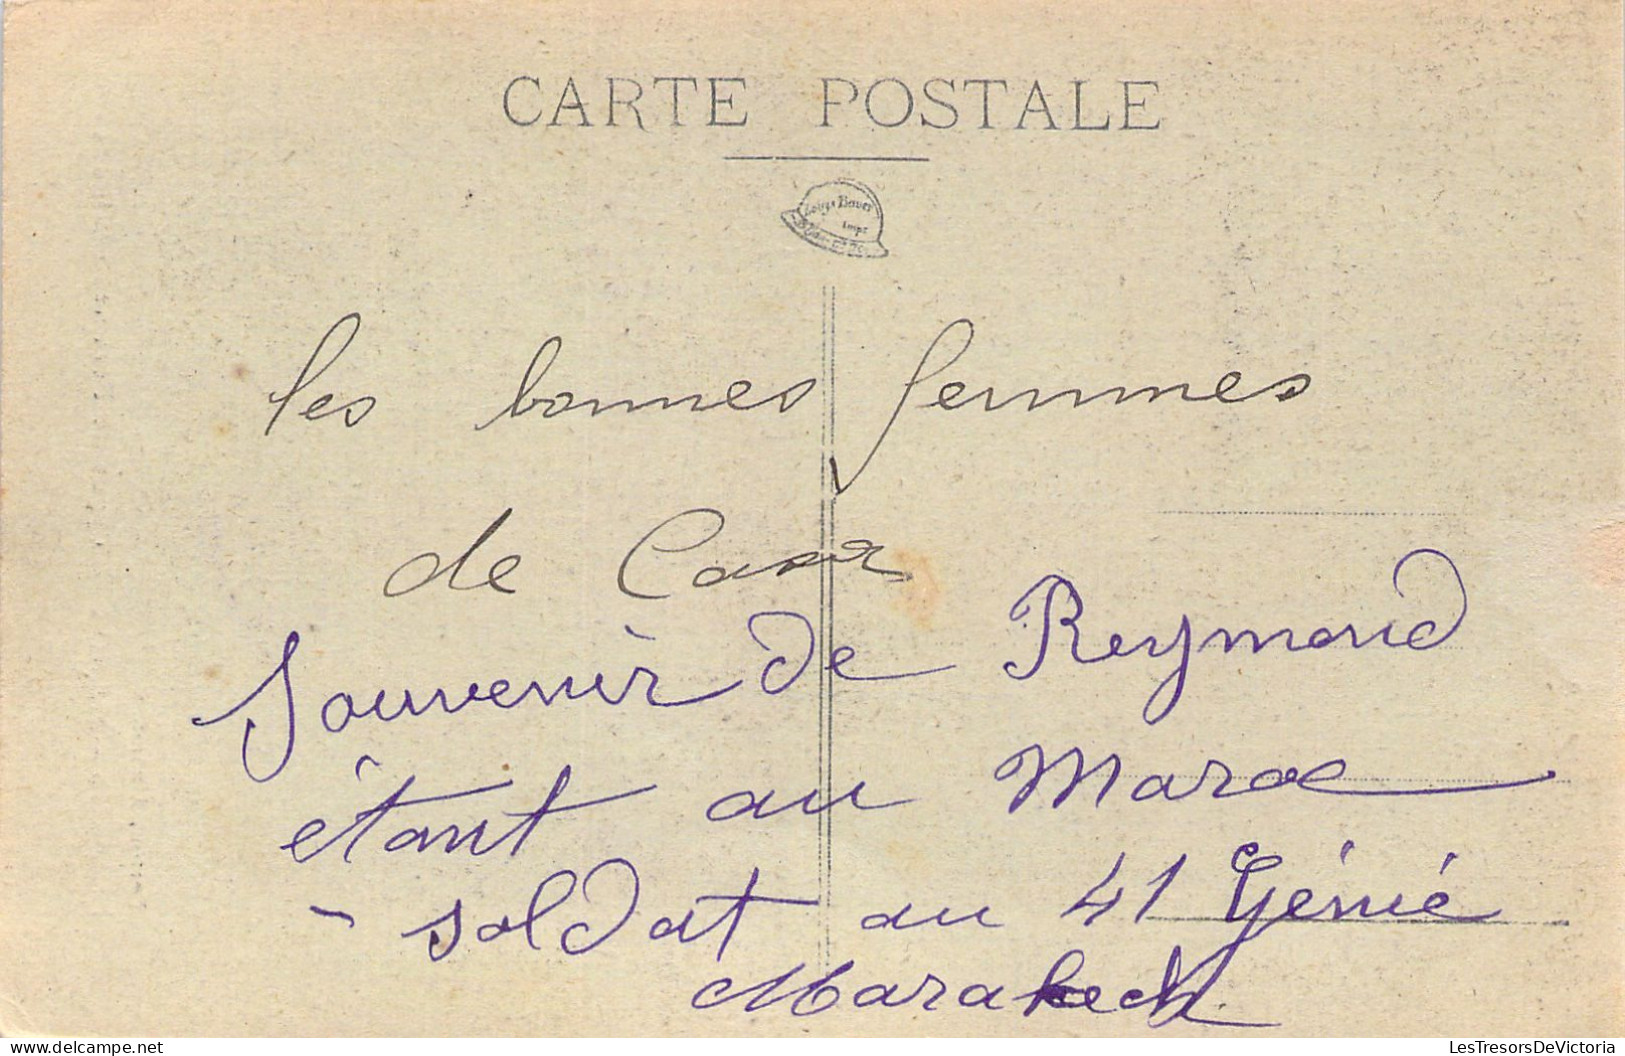 CARTE POSTALE
les bonnes femmes
de Casa
Souvenir de Reymond
étant au Maroc
- soldat au 41 Génie
Marakech
www.delcampe.net
LesTresorsDeVictoria